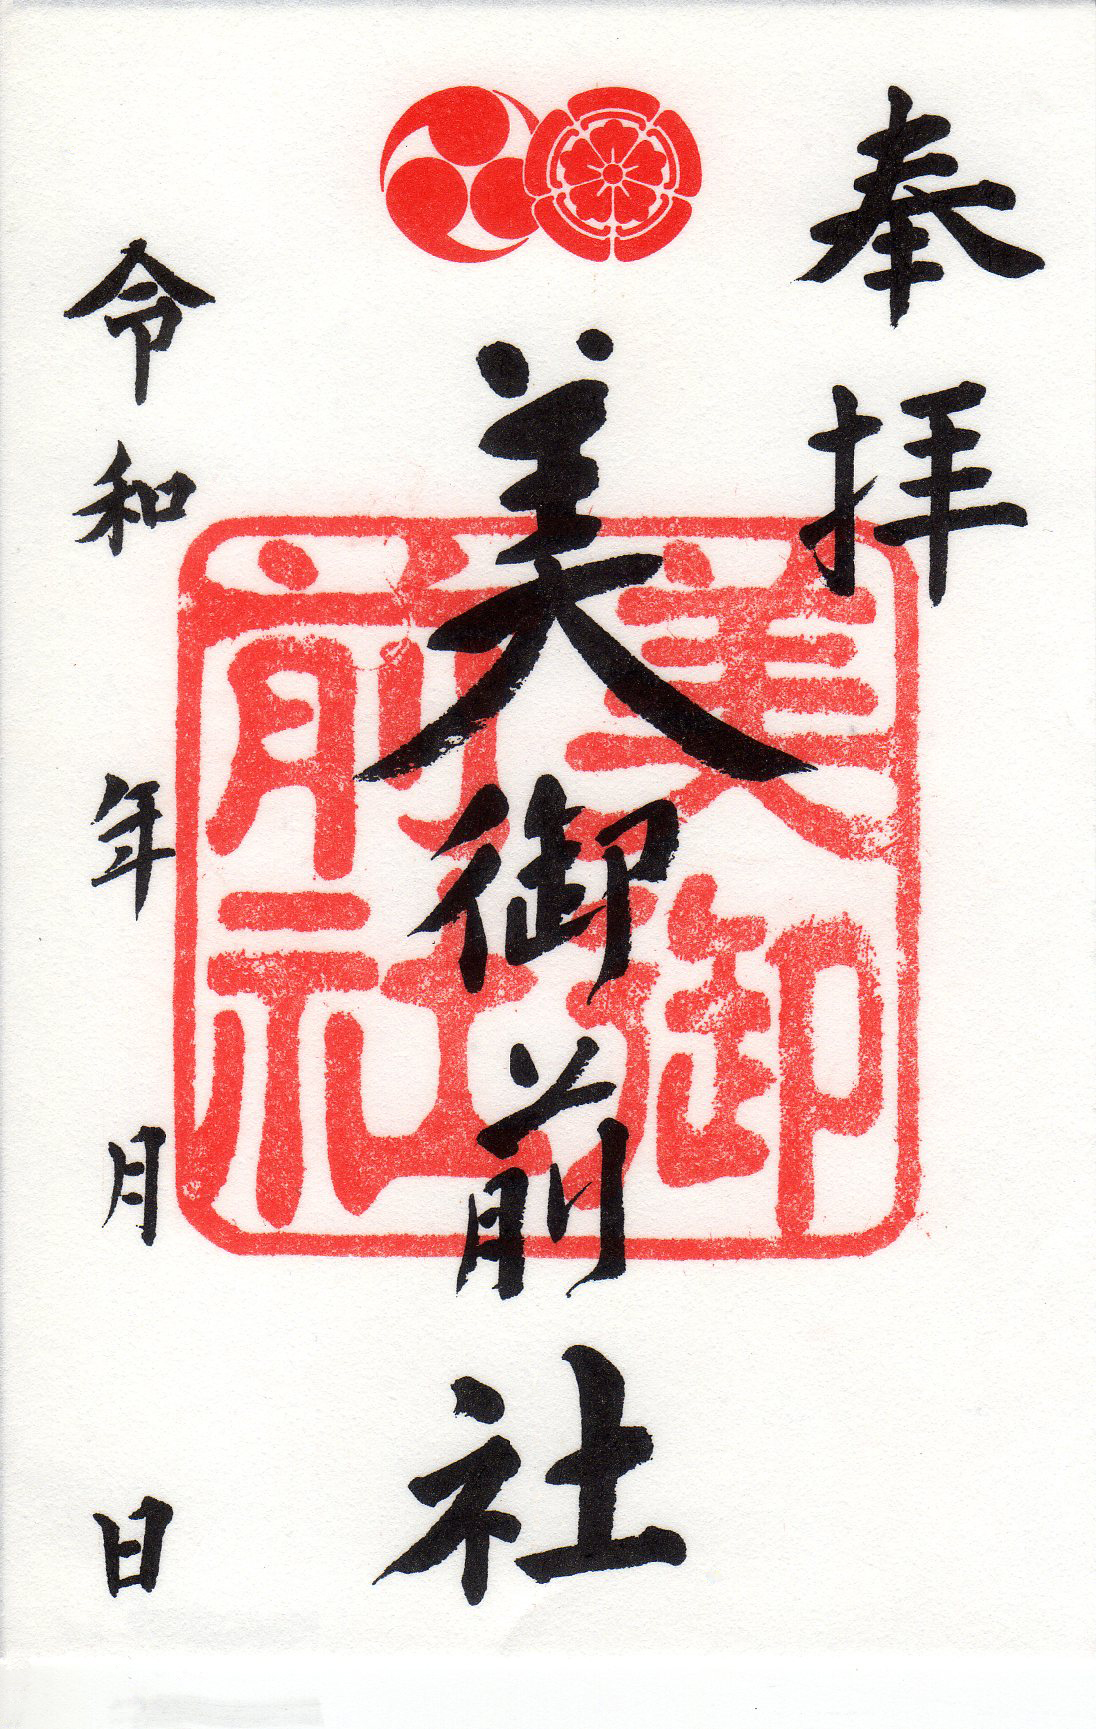 奉拝
美御前社
美御
前社
令和 年 月 日